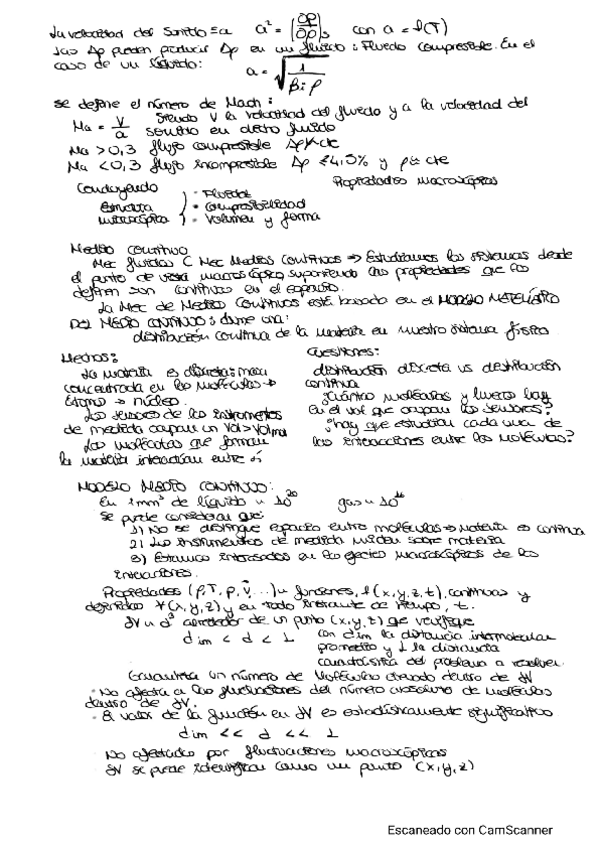 La velocidad del sonido = a a² = (∂p/∂ρ)s con a = f(T)
Las Δp pueden producir Δρ en un fluido: Fluido compresible. En el
caso de un líquido: a = √(1/(β·ρ))
Se define el número de Mach:
Ma = V/a siendo V la velocidad del fluido y a la velocidad del
sonido en dicho fluido
Ma > 0,3 flujo compresible
Ma < 0,3 flujo incompresible Δρ ≤ 4,5% y ρ ≅ cte
Concluyendo Propiedades macroscópicas
Estructura · Fluidez
microscópica · Compresibilidad
· Volumen y forma
Medio continuo
Mec fluidos C Mec Medios Continuos => Estudiamos los sistemas desde
el punto de vista macroscópico, suponiendo las propiedades que los
definen son continuas en el espacio.
La Mec de Medios Continuos está basado en el MODELO MATEMÁTICO
DEL MEDIO CONTINUO: asume una:
distribución continua de la materia en nuestro sistema físico
Hechos: Cuestiones:
La materia es discreta: masa distribución discreta vs distribución
concentrada en las moléculas → continua
Átomo → núcleo. ¿Cuántas moléculas y huecos hay
Los sensores de los instrumentos en el vol que ocupan los sensores?
de medida ocupan un Vol > Vol ¿hay que estudiar cada una de
Las moléculas que forman las interacciones entre las moléculas?
la materia interactúan entre sí
MODELO MEDIO CONTINUO:
En 1mm³ de líquido ~ 10²⁰ gas ~ 10¹⁶
Se puede considerar que:
1) No se distingue espacios entre moléculas → Materia es continua
2) Los instrumentos de medida miden sobre materia
3) Estamos interesados en los efectos macroscópicos de las
interacciones.
Propiedades (ρ, T, p, v, ...) ~ funciones, f(x,y,z,t), continuas y
definidas ∀(x,y,z) y en todo instante de tiempo, t.
δV ~ d³ alrededor de un punto (x,y,z) que verifique
dim < d < L con dim la distancia intermolecular
promedio y L la distancia
característica del problema a resolver.
Encuentra un número de moléculas elevado dentro de δV
· No afecta a las fluctuaciones del número absoluto de moléculas
dentro de δV.
· El valor de la función en δV es estadísticamente significativo
dim << d << L
No afectado por fluctuaciones macroscópicas
δV se puede identificar como un punto (x,y,z)
Escaneado con CamScanner